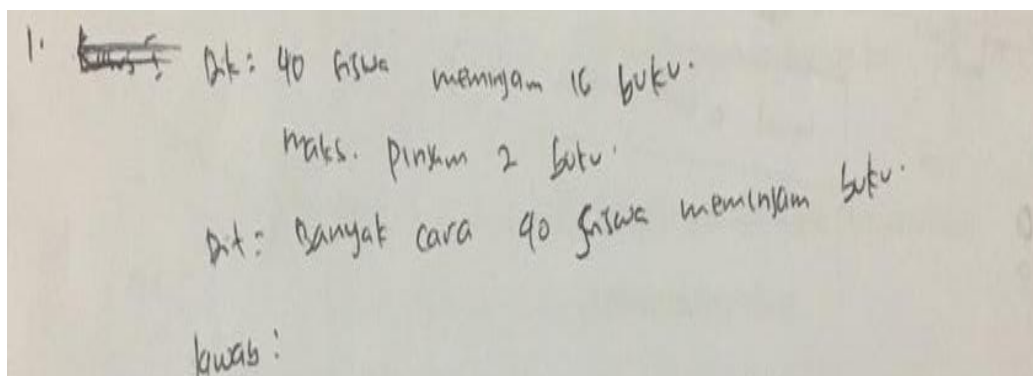 1. Dik: 40 siswa meminjam 16 buku.
Maks. pinjam 2 buku.
Dit: Banyak cara 40 siswa meminjam buku.
Jawab: